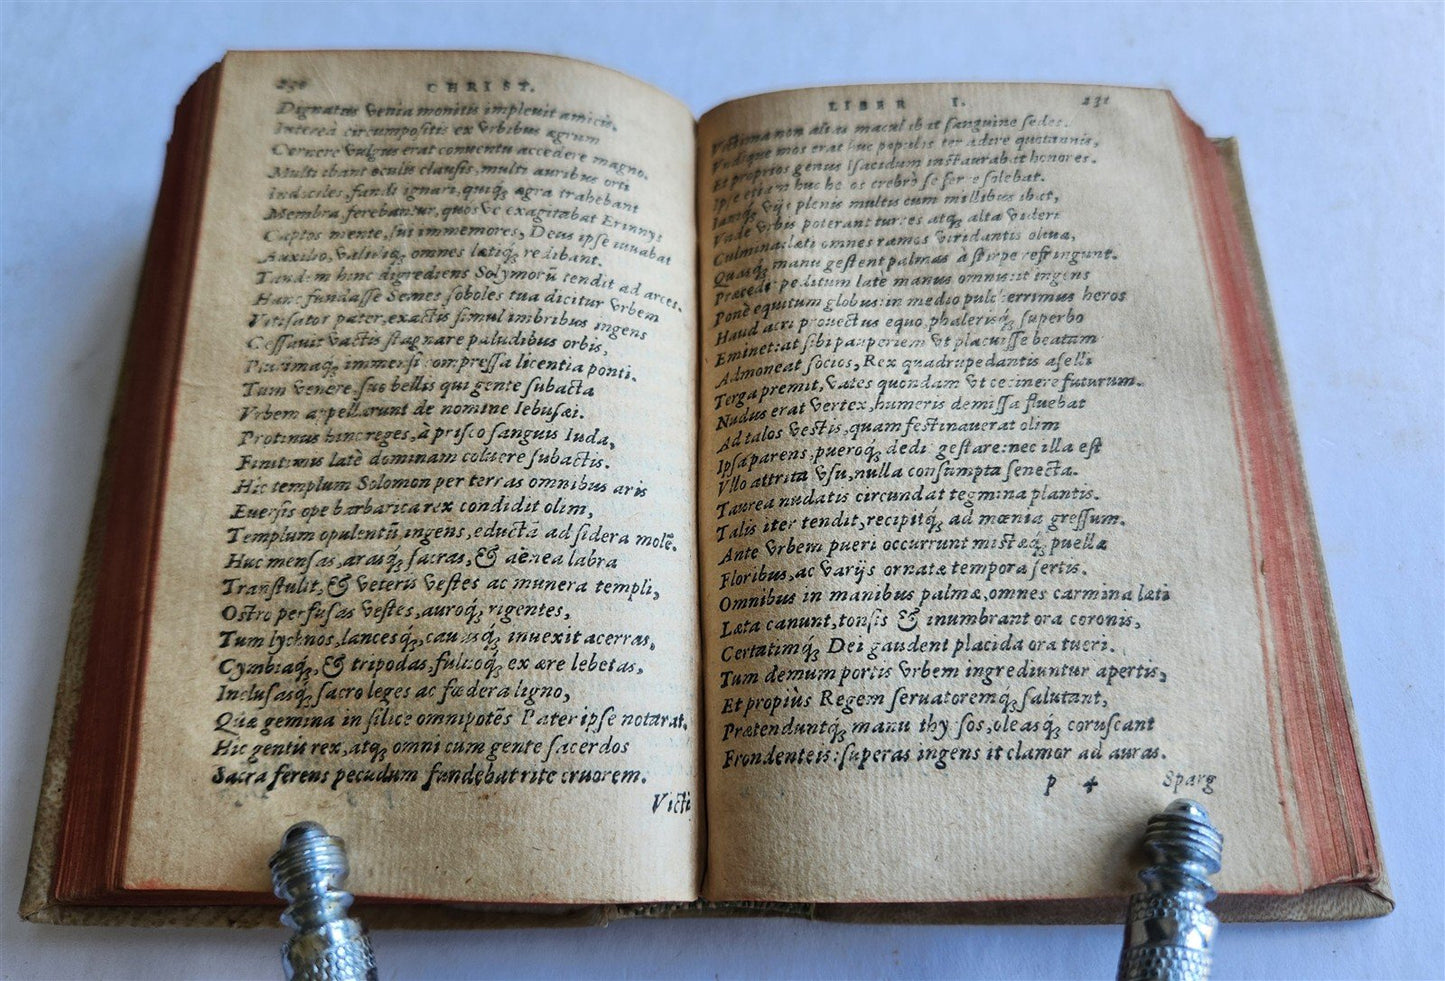 230 CHRIST.
Dignatus venia monitis impleuit amicis.
Intereà circumpositis ex vrbibus agrum
Cernere vulgus erat conuentu accedere magno.
Multi ibant oculis clausis, multi auribus orti
Indociles, fandi ignari, quiq́; ægra trahebant
Membra, ferebantur, quos ve exagitabat Erinnys
Captos mente, sui immemores, Deus ipse iuuabat
Auxilio, validiq́; omnes lætiq́; redibant.
Tandem hinc digrediens Solymorũ tendit ad arces.
Hanc fundasse Semes soboles tua dicitur vrbem
Vitisator pater, exactis simul imbribus ingens
Cessauit vactis stagnare paludibus orbis,
immensi compressa licentia ponti.
Tum venere sus bellis qui gente subacta
Vrbem appellarunt de nomine Iebusæi.
Protinus hinc reges, à prisco sanguis Iuda,
Finitimis latè dominam coluere subactis.
Hic templum Solomon per terras omnibus aris
Euersis ope barbarica rex condidit olim,
Templum opulentũ, ingens, eductã ad sidera molẽ.
Huc mensas, arasq́; sacras, & aënea labra
Transtulit, & veteris vestes ac munera templi,
Ostro perfusas vestes, auroq́; rigentes,
Tum lychnos, lancesq́;, cauasq́; inuexit acerras,
Cymbiaq́;, & tripodas, fuluoq́; ex ære lebetas,
Inclusasq́; sacro leges ac fœdera ligno,
Quæ gemina in silice omnipotẽs Pater ipse notarat.
Hic gentis rex, atq́; omni cum gente sacerdos
Sacra ferens pecudum fundebat rite cruorem.
Victi
LIBER I. 231
Victima non alias maculabat sanguine sedes.
Vndique mos erat huc populis ter adire quotannis,
Et proprios genus Isacidum instaurabat honores.
Ipse etiam huc heros crebrò se ferre solebat.
Iamq́; vijs plenis multis cum millibus ibat,
Vnde vrbis poterant turres atq́; alta videri
Culmina: læti omnes ramos viridantis oliuæ,
Quasq́; manu gestent palmas à stirpe refringunt.
Præcedit peditum latè manus omnis: it ingens
Ponè equitum globus: in medio pulcherrimus heros
Haud acri prouectus equo, phalerisq́; superbo
Eminet: at sibi pauperiem vt placuisse beatam
Admoneat socios, Rex quadrupedantis aselli
Terga premit, vates quondam vt cecinere futurum.
Nudus erat vertex, humeris demissa fluebat
Ad talos vestis, quam festinauerat olim
Ipsa parens, pueroq́; dedit gestare: nec illa est
Vllo attrita vsu, nulla consumpta senecta.
Taurea nudatis circundat tegmina plantis.
Talis iter tendit, recipitq́; ad mœnia gressum.
Ante vrbem pueri occurrunt mistæq́; puellæ
Floribus, ac varijs ornatæ tempora sertis.
Omnibus in manibus palmæ, omnes carmina læti
Læta canunt, tonsis & inumbrant ora coronis,
Certatimq́; Dei gaudent placida ora tueri.
Tum demum portis vrbem ingrediuntur apertis,
Et propiùs Regem seruatoremq́; salutant,
Prætenduntq́; manu thyrsos, oleasq́; coruscant
Frondenteis: superas ingens it clamor ad auras.
P 4 Sparg